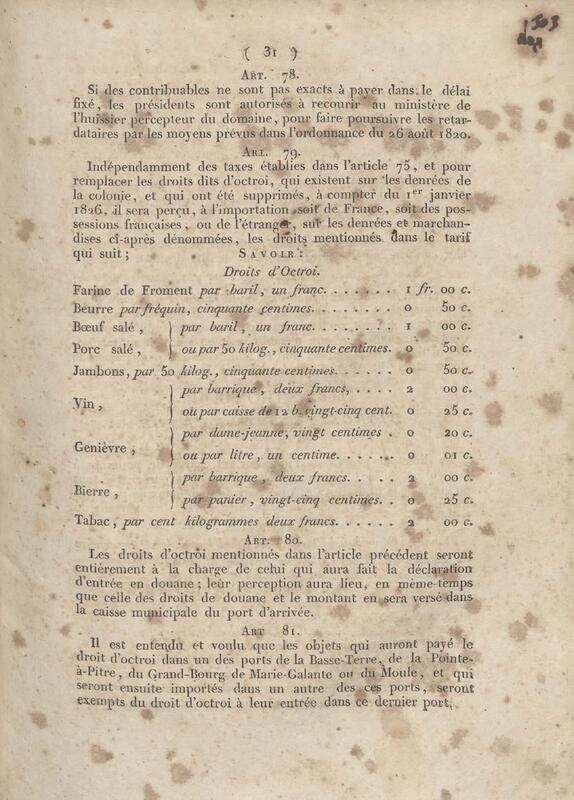 303
( 31 )
ART. 78.
Si des contribuables ne sont pas exacts à payer dans le délai
fixé, les présidents sont autorisés à recourir au ministère de
l'huissier percepteur du domaine, pour faire poursuivre les retar-
dataires par les moyens prévus dans l'ordonnance du 26 août 1820.
ART. 79.
Indépendamment des taxes établies dans l'article 75, et pour
remplacer les droits dits d'octroi, qui existent sur les denrées de
la colonie, et qui ont été supprimés, à compter du 1er janvier
1826, il sera perçu, à l'importation soit de France, soit des pos-
sessions françaises, ou de l'étranger, sur les denrées et marchan-
dises ci-après dénommées, les droits mentionnés dans le tarif
qui suit; SAVOIR:
Droits d'Octroi.
Farine de Froment par baril, un franc. . . . . . . 1 fr. 00 c.
Beurre par fréquin, cinquante centimes. . . . . . . 0 50 c.
Bœuf salé, par baril, un franc. . . . . . . 1 00 c.
Porc salé, ou par 50 kilog., cinquante centimes. 0 50 c.
Jambons, par 50 kilog., cinquante centimes. . . . . . 0 50 c.
Vin, par barrique, deux francs, . . . . 2 00 c.
ou par caisse de 12 b. vingt-cinq cent. 0 25 c.
Genièvre, par dame-jeanne, vingt centimes . 0 20 c.
ou par litre, un centime. . . . . . 0 01 c.
Bierre, par barrique, deux francs. . . . . 2 00 c.
par panier, vingt-cinq centimes. . 0 25 c.
Tabac, par cent kilogrammes deux francs. . . . . . 2 00 c.
ART. 80.
Les droits d'octroi mentionnés dans l'article précédent seront
entièrement à la charge de celui qui aura fait la déclaration
d'entrée en douane; leur perception aura lieu, en même-temps
que celle des droits de douane et le montant en sera versé dans
la caisse municipale du port d'arrivée.
ART 81.
Il est entendu et voulu que les objets qui auront payé le
droit d'octroi dans un des ports de la Basse-Terre, de la Pointe-
à-Pitre, du Grand-Bourg de Marie-Galante ou du Moule, et qui
seront ensuite importés dans un autre des ces ports, seront
exempts du droit d'octroi à leur entrée dans ce dernier port.